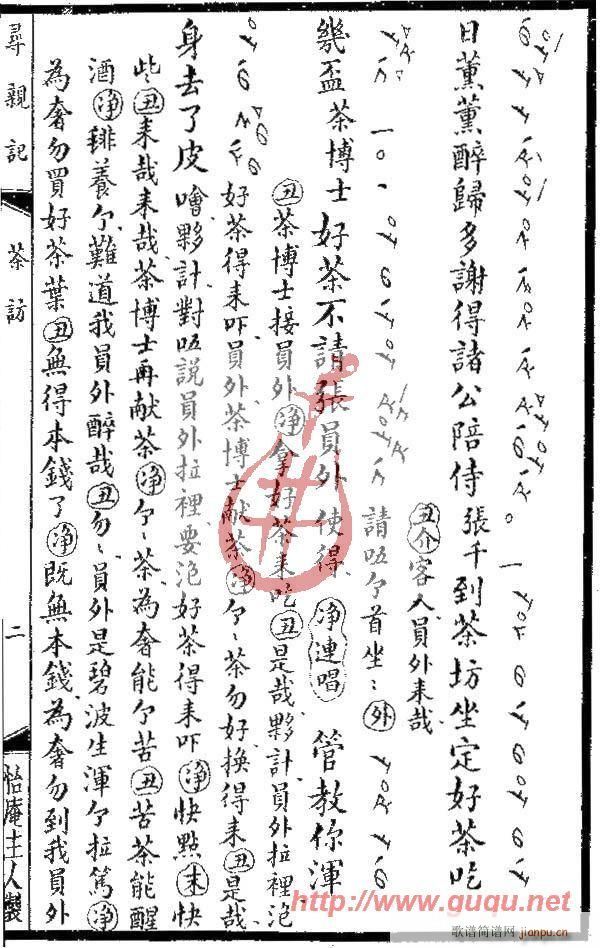 日薰薰醉歸多謝得諸公陪侍張千到茶坊坐定好茶吃
丑介客人員外來哉
請唔个首坐：外
幾盃茶博士好茶不請張員外使得净連唱管教你渾
丑茶博士接員外净拿好茶來吃丑是哉夥計員外拉裡泡
好茶得来吓員外茶博士献茶净个、茶勿好換得来丑是哉
身去了皮噲夥計對唔説員外拉裡要泡好茶得来吓净快點末快
些丑来哉来哉茶博士再献茶净个、茶為奢能个苦丑苦茶能醒
酒净養个難道我員外醉哉丑勿、員外是碧波生渾个拉篤净
為奢勿買好茶葉丑無得本錢了净既無本錢為奢勿到我員外
尋親記
茶訪
二
怡庵主人製
http://www.guqu.net
歌谱简谱网
jianpu.cn